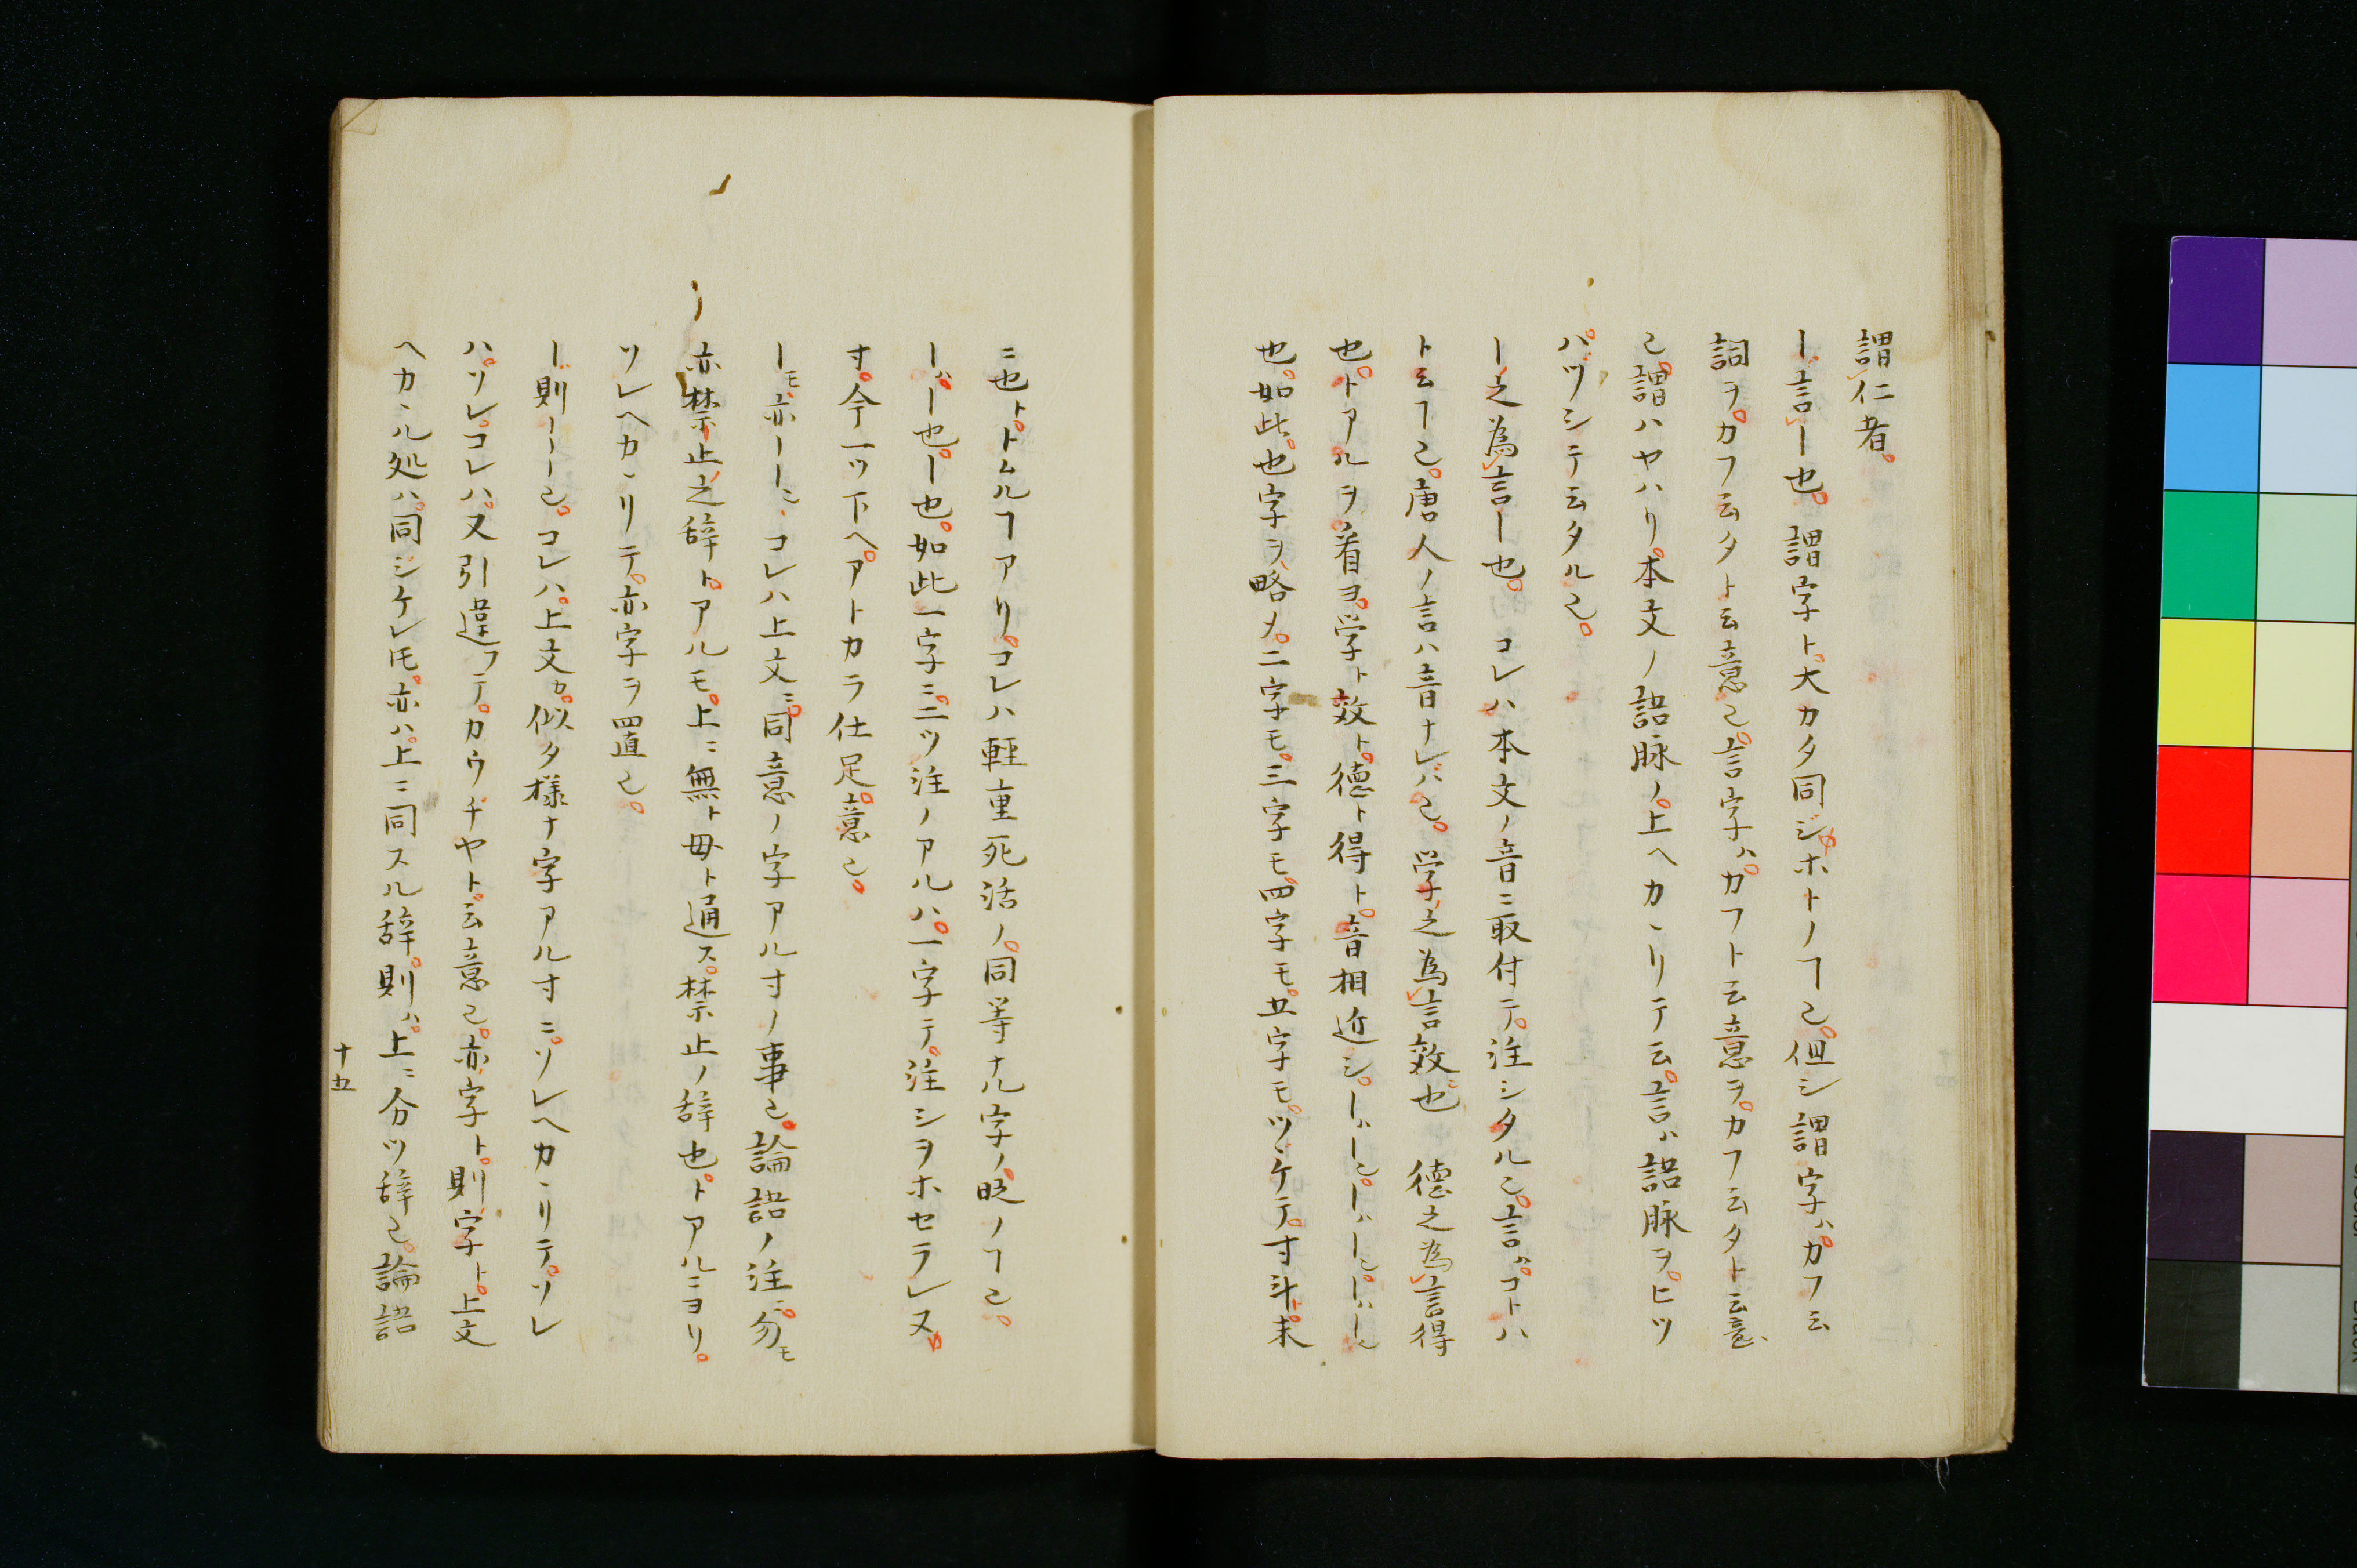 謂仁者。
｜言｜也。謂字ト。大カタ同ジホトノヿ㔫。但シ謂字ハ。カフ云
詞ヲ。カフ云タト云意㔫。言字ハ。カフト云意ヲ。カフ云タト云意
㔫。謂ハヤハリ。本文ノ語脉ノ。上ヘカヽリテ云。言ハ語脉ヲ。ヒツ
ハヅシテ云タル㔫。
｜之為言｜也。コレハ本文ノ音ニ取付テ。注シタル㔫。言ハ。コトハ
ト云ヿ㔫。唐人ノ言ハ音ナレバ㔫。学之為言效也 德之為言得
也。トアルヲ着ヨ。学ト效ト。德ト得ト。音相近シ。｜ハ｜㔫。｜ハ｜㔫。｜ハ｜㔫
也。如此。也字ヲ略メ。二字モ。三字モ。四字モ。五字モ。ツヾケテ。寸斗。末
ニ也ト。トムルヿアリ。コレハ軽重死活ノ。同等ナル字ノ。時ノヿ㔫。
｜ハ｜也。｜也。如此一字ニ。二ツ注ノアルハ。一字テ。注シヲホセラレヌ
寸。今一ツ下ヘ。アトカラ仕足。意㔫。
｜モ亦｜｜㔫。コレハ上文ニ。同意ノ字アル寸ノ事㔫。論語ノ注ニ。勿モ
亦禁止之辞ト。アルモ。上ニ無ト毋ト通ス。禁止ノ辞也。トアルニヨリ。
ソレヘカヽリテ。亦字ヲ置㔫。
｜則｜｜㔫。コレハ。上文カ。似タ様ナ字アル寸ニ。ソレヘカヽリテ。ソレ
ハ。ソレ。コレハ。又引違フテ。カウヂヤト。云意㔫。亦字ト。則字ト。上文
ヘカヽル処ハ。同ジケレ𪜈。亦ハ。上ニ同スル辞。則ハ。上ニ分ツ辞㔫。論語
十五